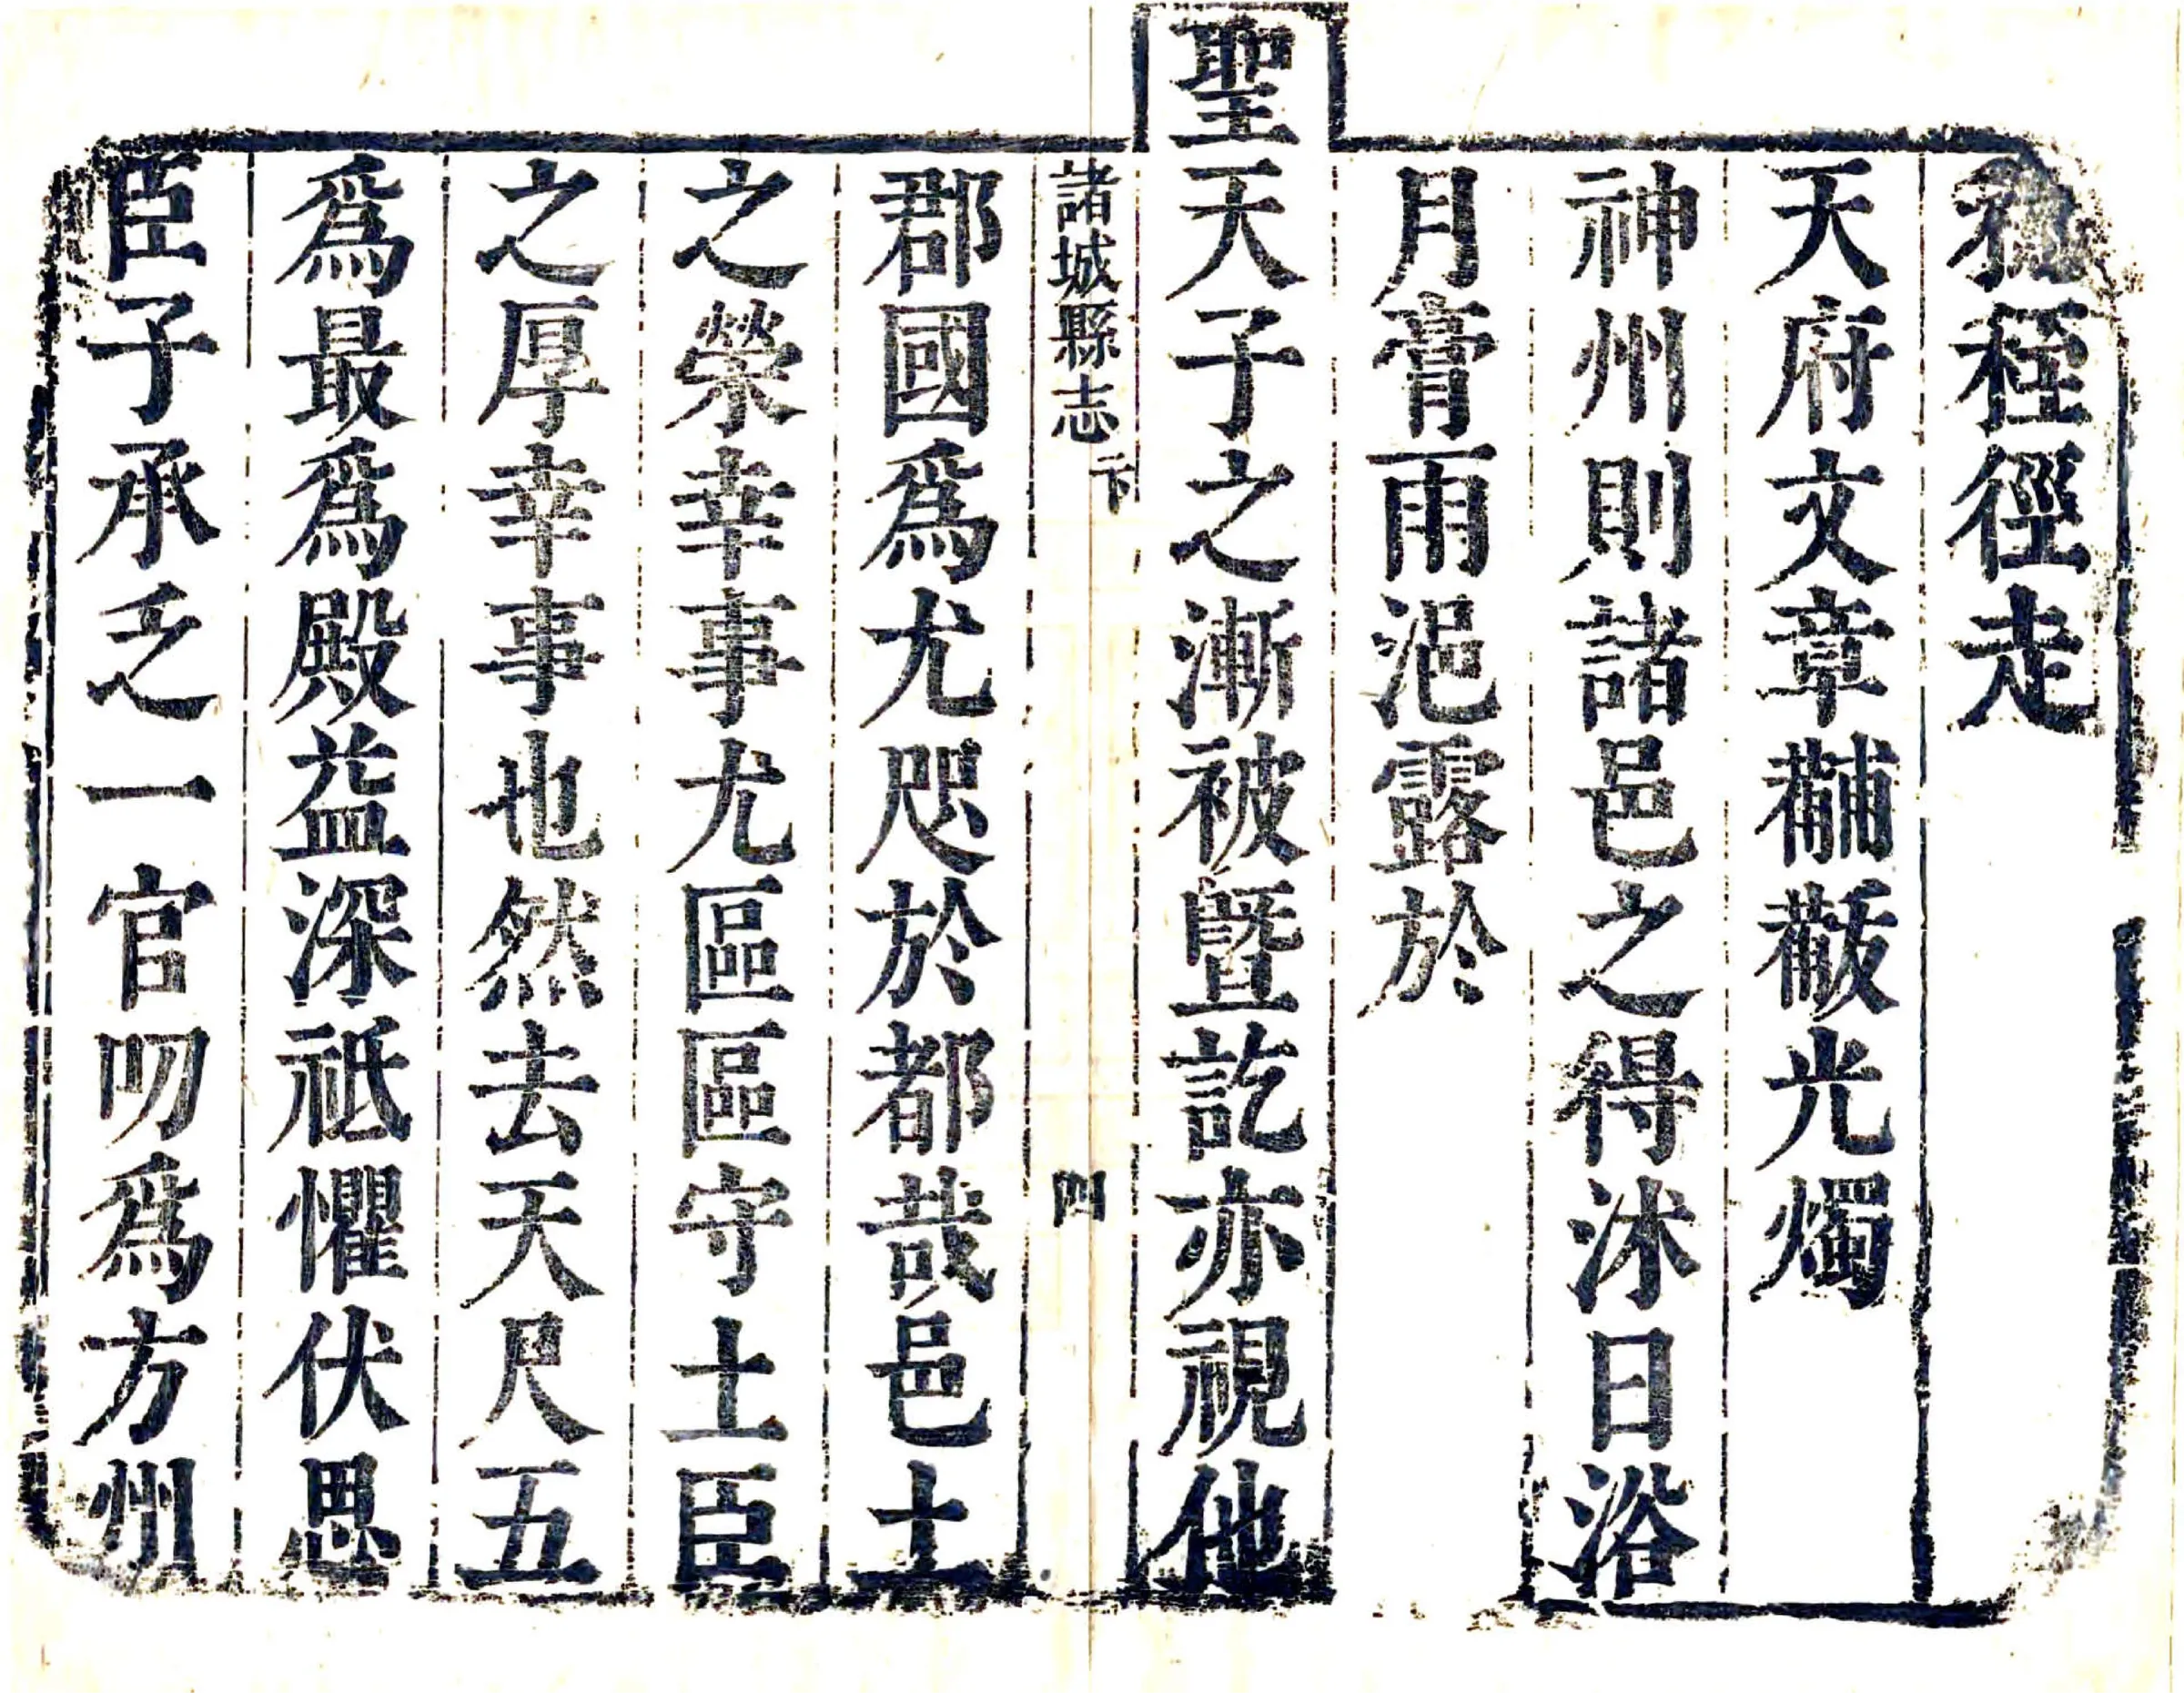 秷徑走
天府文章黼黻光燭
神州則諸邑之得沐日浴
月膏雨浥露於
聖天子之漸被暨訖亦視他
諸城縣志 卞 四
郡國爲尤咫於都哉邑士
之榮幸事尤區區守土臣
之厚幸事也然去天尺五
爲最爲殿益深祗懼伏思
臣子承乏一官叨爲方州